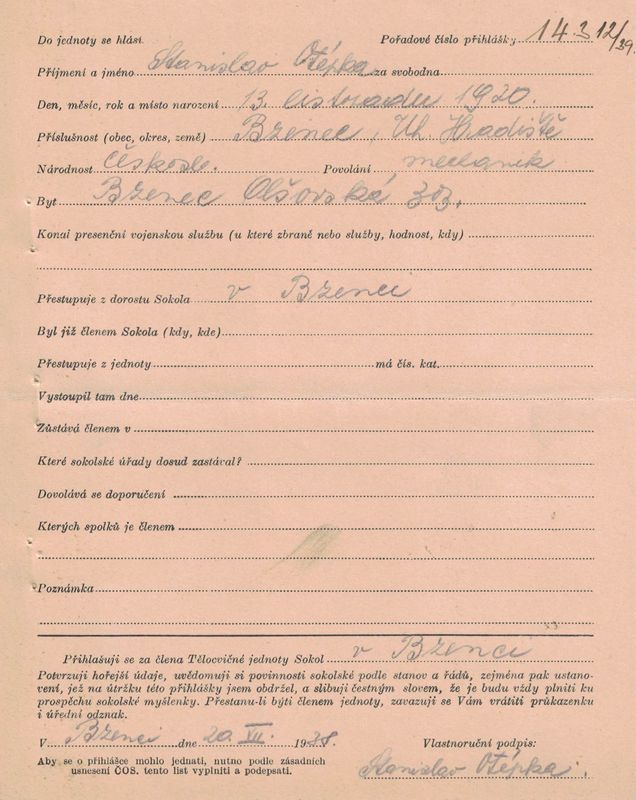 Do jednoty se hlásí Pořadové číslo přihlášky 14312/39.
Příjmení a jméno Stanislav Otépka za svobodna
Den, měsíc, rok a místo narození 13 listopadu 1920.
Příslušnost (obec, okres, země) Bzenec, Uh. Hradiště
Národnost českosl. Povolání mechanik
Byt Bzenec Olšovská 303.
Konal presenční vojenskou službu (u které zbraně nebo služby, hodnost, kdy)
Přestupuje z dorostu Sokola v Bzenci
Byl již členem Sokola (kdy, kde)
Přestupuje z jednoty má čís. kat.
Vystoupil tam dne
Zůstává členem v
Které sokolské úřady dosud zastával?
Dovolává se doporučení
Kterých spolků je členem
Poznámka
Přihlašuji se za člena Tělocvičné jednoty Sokol v Bzenci
Potvrzuji hořejší údaje, uvědomuji si povinnosti sokolské podle stanov a řádů, zejména pak ustano-
vení, jež na útržku této přihlášky jsem obdržel, a slibuji čestným slovem, že je budu vždy plniti ku
prospěchu sokolské myšlenky. Přestanu-li býti členem jednoty, zavazuji se Vám vrátiti průkazenku
i úřední odznak.
V Bzenci dne 20 XII. 1938. Vlastnoruční podpis:
Aby se o přihlášce mohlo jednati, nutno podle zásadních
usnesení ČOS. tento list vyplniti a podepsati. Stanislav Otépka.